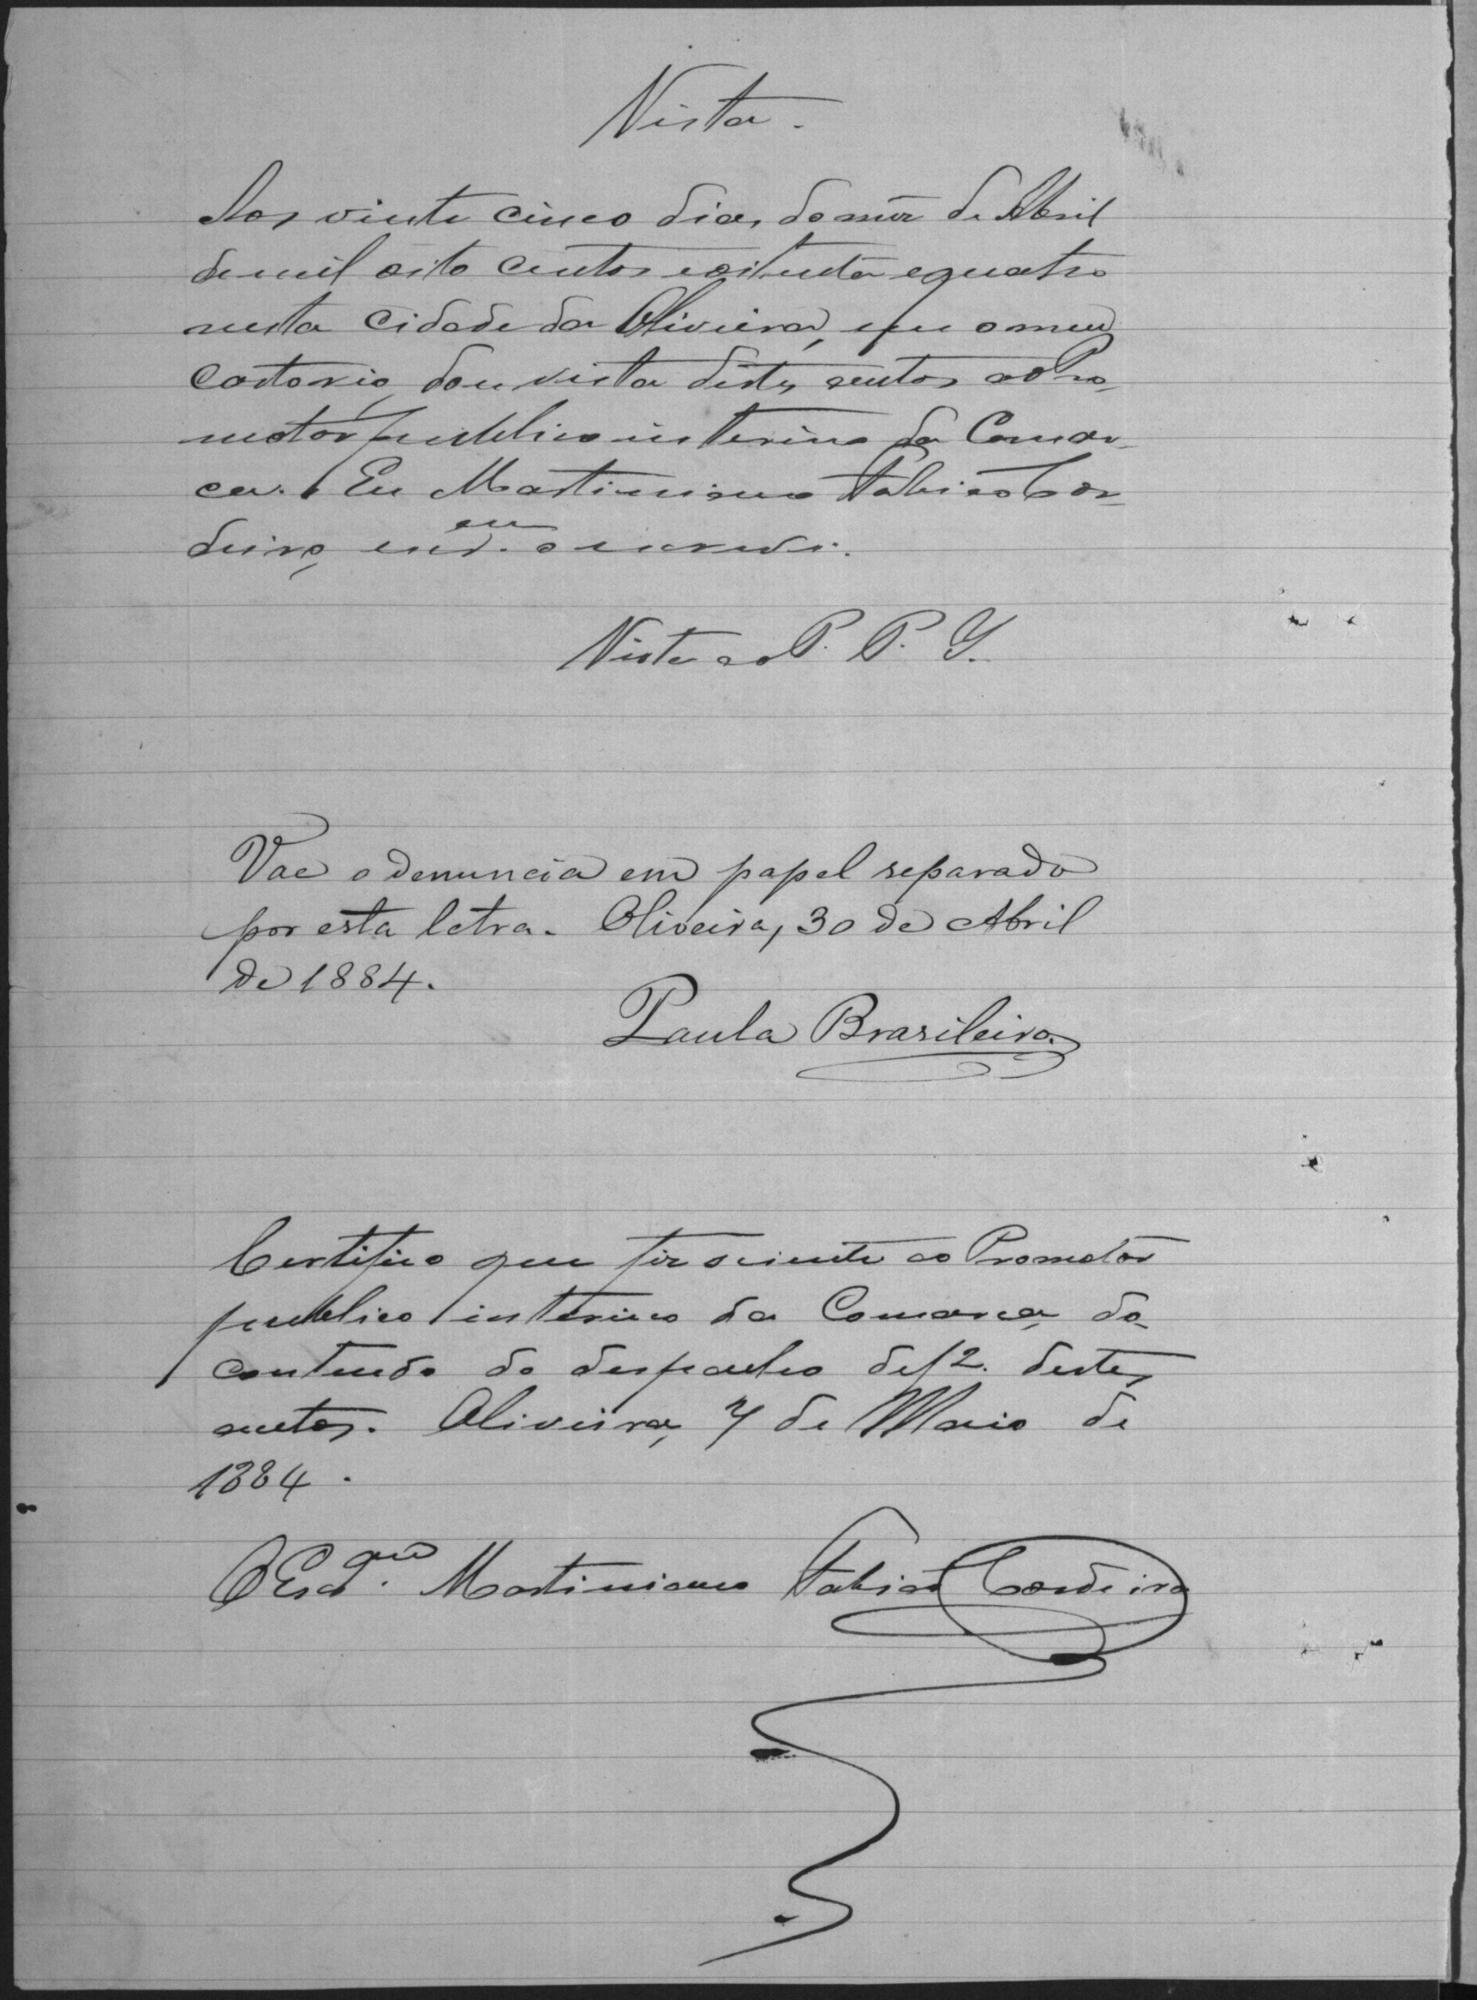 Vista.
Aos vinte cinco dias do mez de Abril
de mil oito centos e oitenta e quatro
nesta Cidade da Oliveira, em o meu
Cartorio, dou vista destes autos ao Pro
motor publico interino da Comar
ca. Eu Martiniano Fabião Cor
deiro, o escrevi.
Vista ao P. P. I.
Vae a denuncia em papel separado
por esta letra. Oliveira, 30 de Abril
de 1884.
Paula Brasileiro.
Certifico que fiz sciente ao Promotor
publico interino da Comarca, do
contendo do despacho de f 2. destes
autos. Oliveira, 7 de Maio de
1884.
O Escr.am Martiniano Fabião Cordeiro